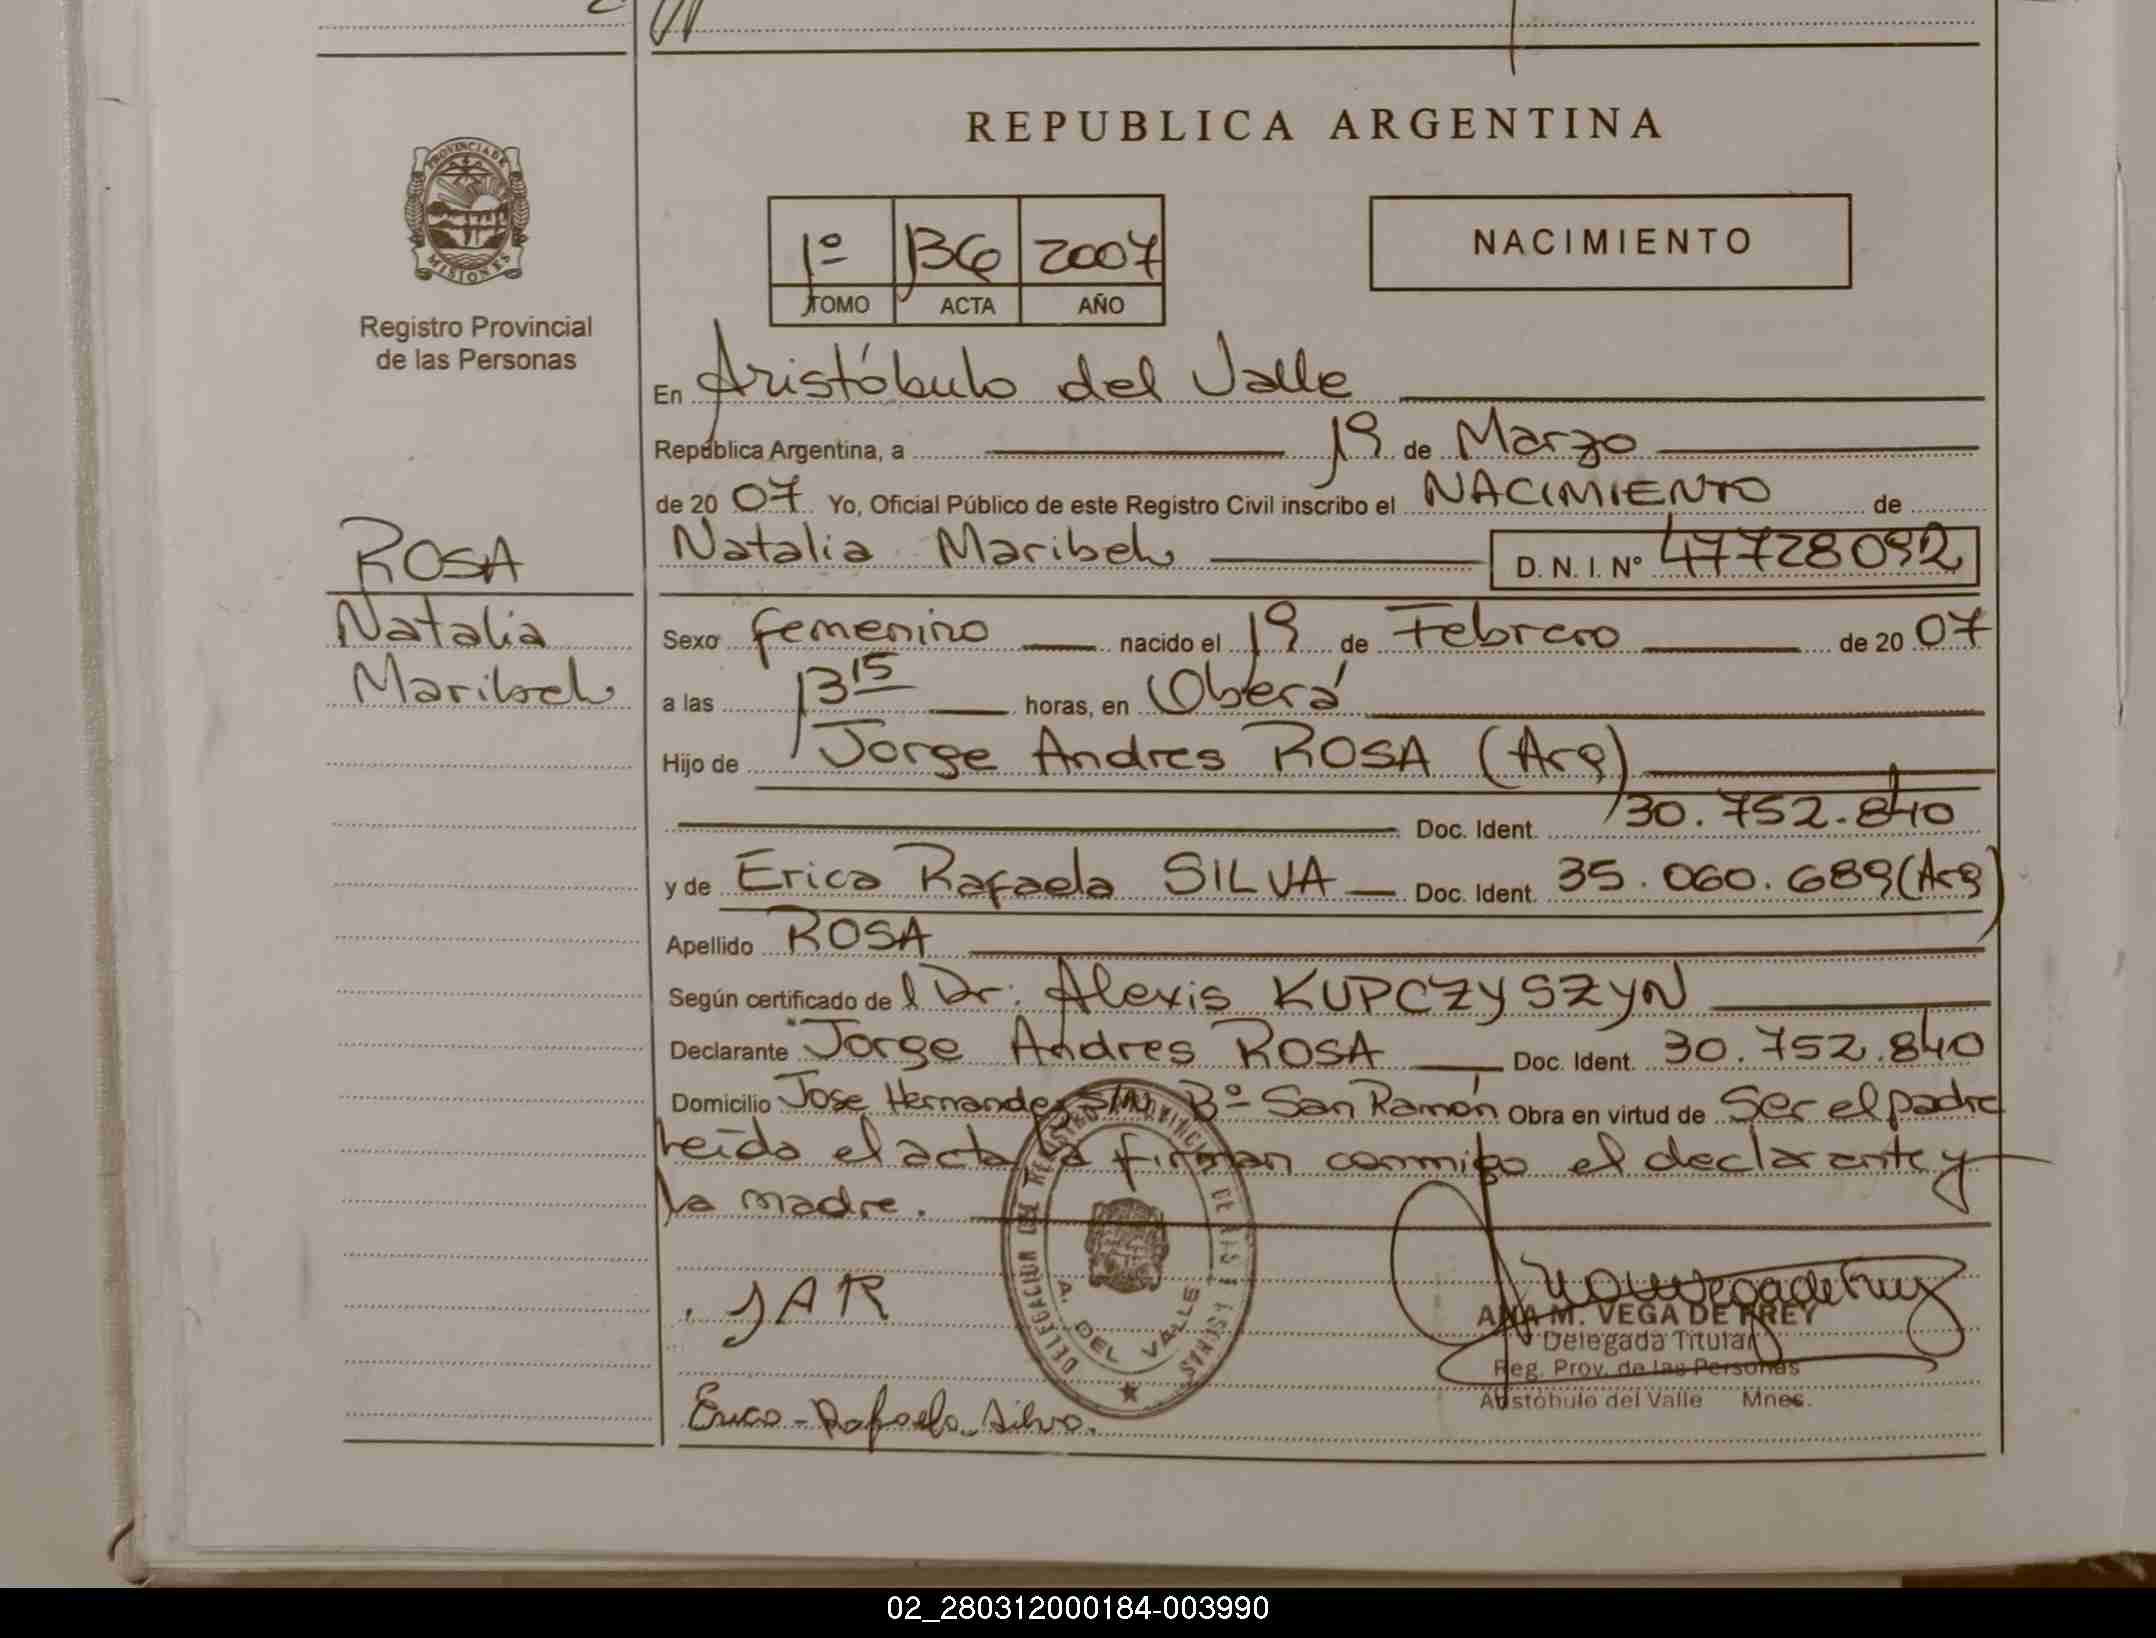 REPUBLICA ARGENTINA
PROVINCIA DE MISIONES
Registro Provincial
de las Personas
1º 136 2007
TOMO ACTA AÑO
NACIMIENTO
En Aristóbulo del Valle
República Argentina, a 19 de Marzo
de 20 07 Yo, Oficial Público de este Registro Civil inscribo el NACIMIENTO de
Natalia Maribel D. N. I. Nº 47728092
ROSA
Natalia
Maribel
Sexo femenino nacido el 19 de Febrero de 20 07
a las 13 15 horas, en Oberá
Hijo de Jorge Andres ROSA (Arg)
Doc. Ident. 30.752.840
y de Erica Rafaela SILVA Doc. Ident. 35.060.689 (Arg)
Apellido ROSA
Según certificado de l Dr. Alexis KUPCZYSZYN
Declarante Jorge Andres ROSA Doc. Ident. 30.752.840
Domicilio Jose Hernandez S/N Bº San Ramón Obra en virtud de Ser el padre
Leída el acta la firman conmigo el declarante y
la madre.
JAR
DELEGACION DEL REGISTRO PROVINCIAL DE LAS PERSONAS
A. DEL VALLE
ANA M. VEGA DE FREY
Delegada Titular
Reg. Prov. de las Personas
Aristóbulo del Valle Mnes.
Erica - Rafaela - Silva.
02_280312000184-003990